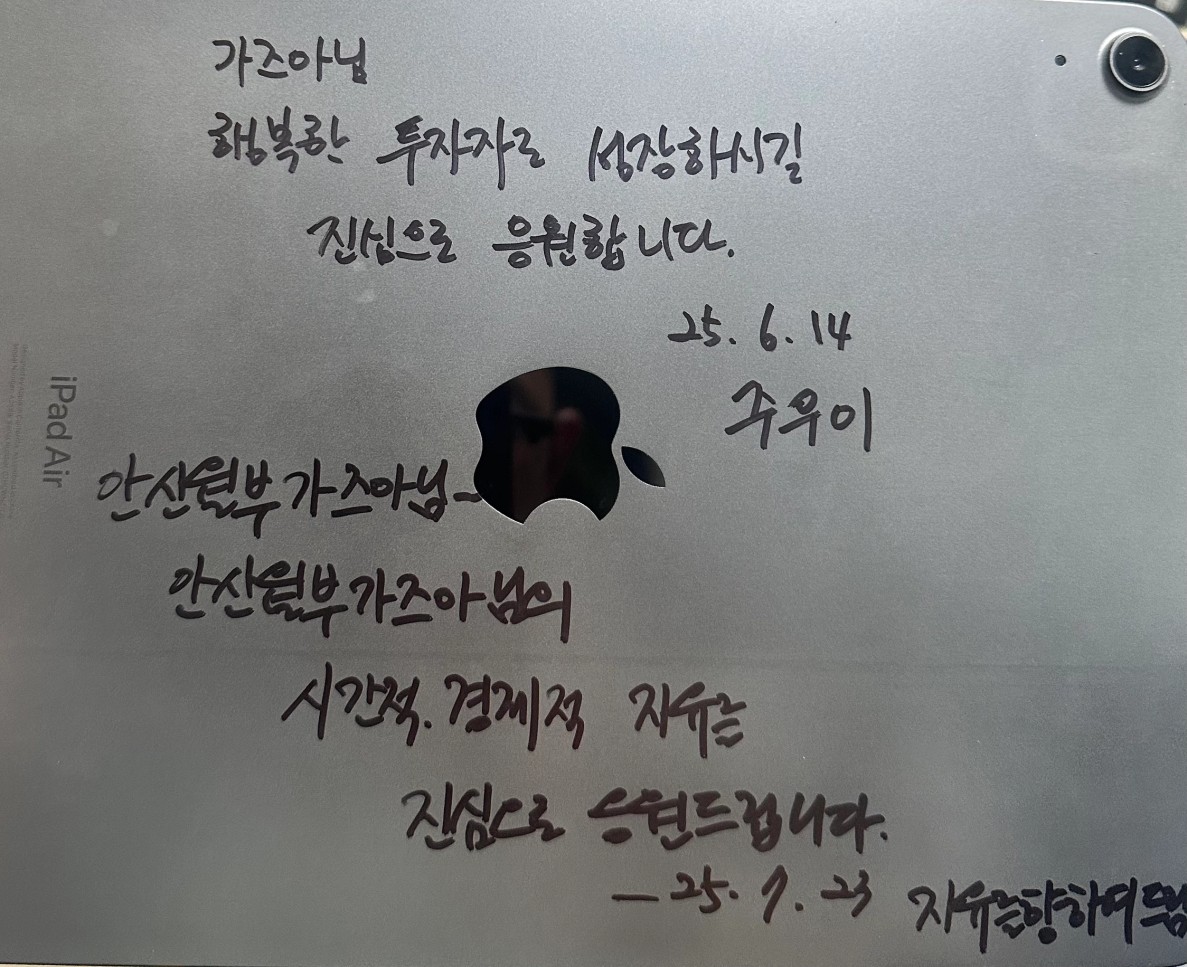 가즈아님
행복한 투자자로 성장하시길
진심으로 응원합니다.
25. 6. 14
주우이
iPad Air
안산월부가즈아님~
안산월부가즈아님의
시간적. 경제적 자유를
진심으로 응원드립니다.
- 25. 7. 23 자유를향하여드림